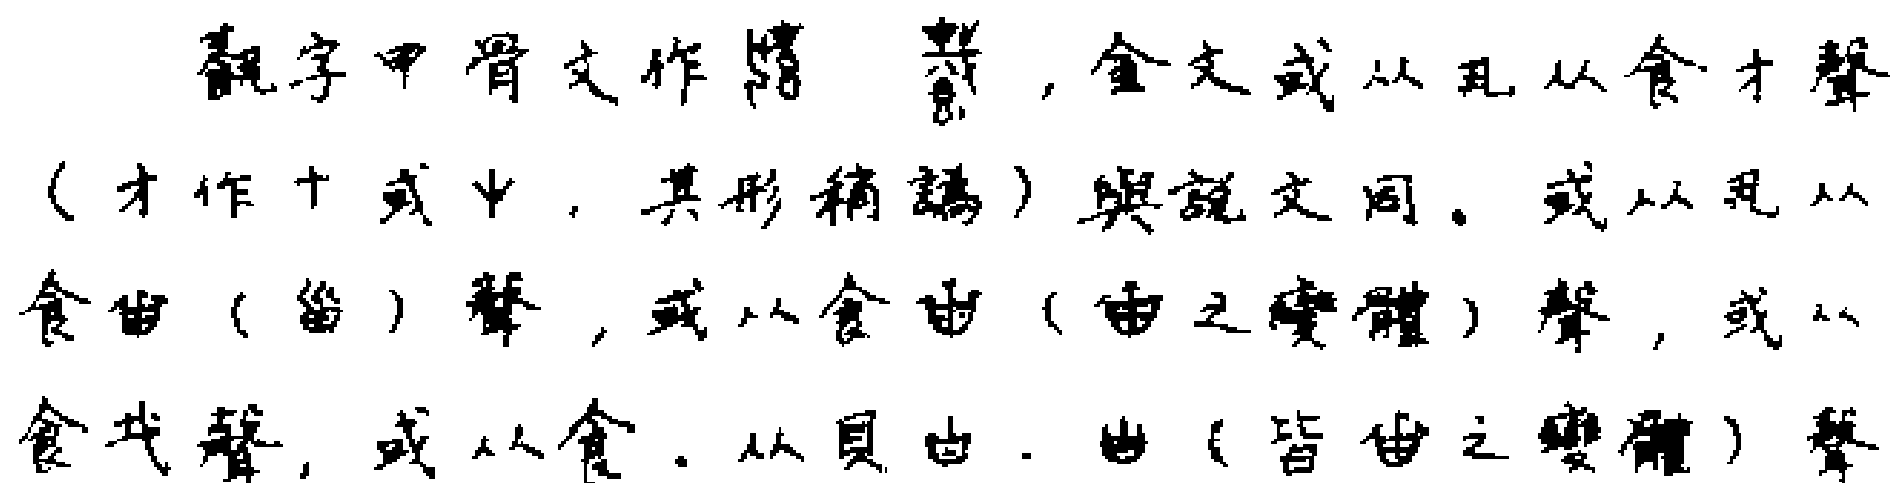 字甲骨文作，金文或从丮从食才聲
（才作十或，其形稍譌）與說文同。或从丮从
食甾（）聲，或从食甾（甾之變體）聲，或从
食𢦏聲，或从食．从頁．（皆甾之變體）聲